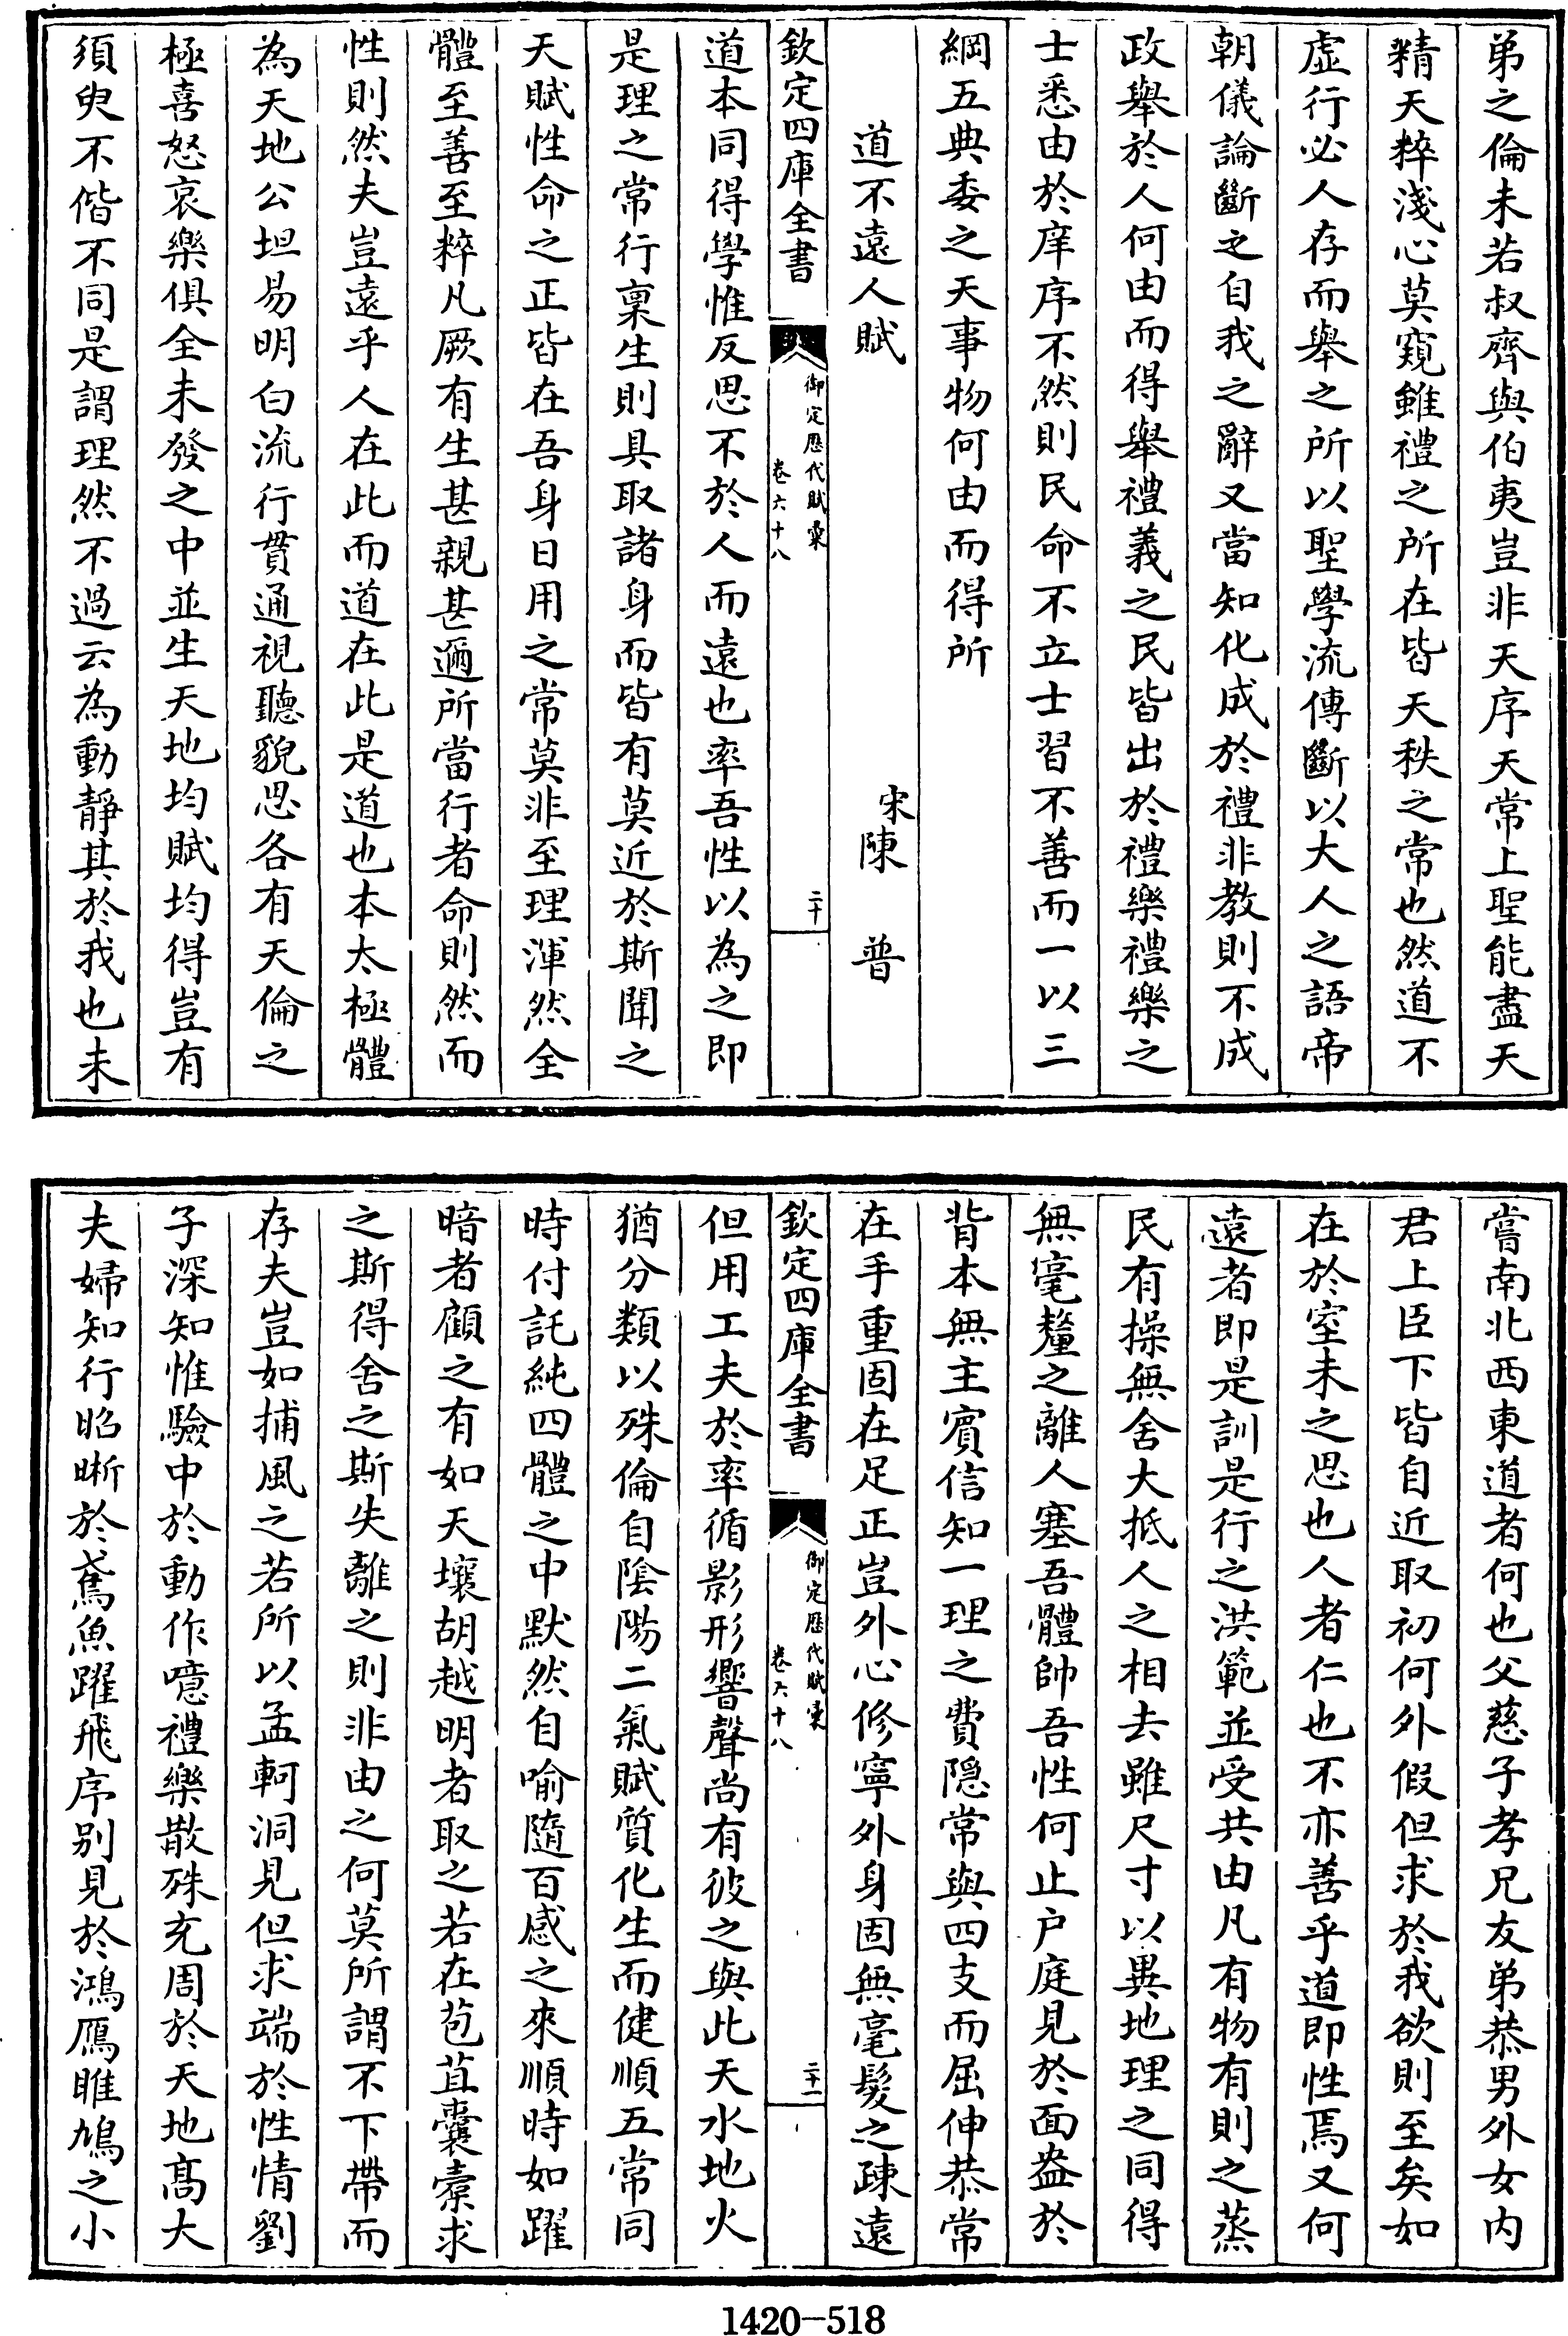 弟之倫未若叔齊與伯夷豈非天序天常上聖能盡天
精天粹淺心莫窺雖禮之所在皆天秩之常也然道不
虛行必人存而舉之所以聖學流傳斷以大人之語帝
朝儀論斷之自我之辭又當知化成於禮非教則不成
政舉於人何由而得舉禮義之民皆出於禮樂禮樂之
士悉由於庠序不然則民命不立士習不善而一以三
綱五典委之天事物何由而得所
道不遠人賦
宋陳普
欽定四庫全書
御定歷代賦彙
卷六十八
二十
道本同得學惟反思不於人而遠也率吾性以為之即
是理之常行稟生則具取諸身而皆有莫近於斯聞之
天賦性命之正皆在吾身日用之常莫非至理渾然全
體至善至粹凡厥有生甚親甚邇所當行者命則然而
性則然夫豈遠乎人在此而道在此是道也本太極體
為天地公坦易明白流行貫通視聽貌思各有天倫之
極喜怒哀樂俱全未發之中並生天地均賦均得豈有
須臾不偕不同是謂理然不過云為動靜其於我也未
嘗南北西東道者何也父慈子孝兄友弟恭男外女內
君上臣下皆自近取初何外假但求於我欲則至矣如
在於室未之思也人者仁也不亦善乎道即性焉又何
遠者即是訓是行之洪範並受共由凡有物有則之蒸
民有操無舍大抵人之相去雖尺寸以異地理之同得
無毫釐之離人塞吾體帥吾性何止户庭見於面盎於
背本無主賓信知一理之費隱常與四支而屈伸恭常
在手重固在足正豈外心修寧外身固無毫髮之疎遠
欽定四庫全書
御定歷代賦彙
卷六十八
二十一
但用工夫於率循影形響聲尚有彼之與此天水地火
猶分類以殊倫自陰陽二氣賦質化生而健順五常同
時付託純四體之中默然自喻隨百感之來順時如躍
暗者顧之有如天壤胡越明者取之若在苞苴囊橐求
之斯得舍之斯失離之則非由之何莫所謂不下帶而
存夫豈如捕風之若所以孟軻洞見但求端於性情劉
子深知惟驗中於動作噫禮樂散殊充周於天地高大
夫婦知行昭晰於鳶魚躍飛序别見於鴻鴈雎鳩之小
1420-518